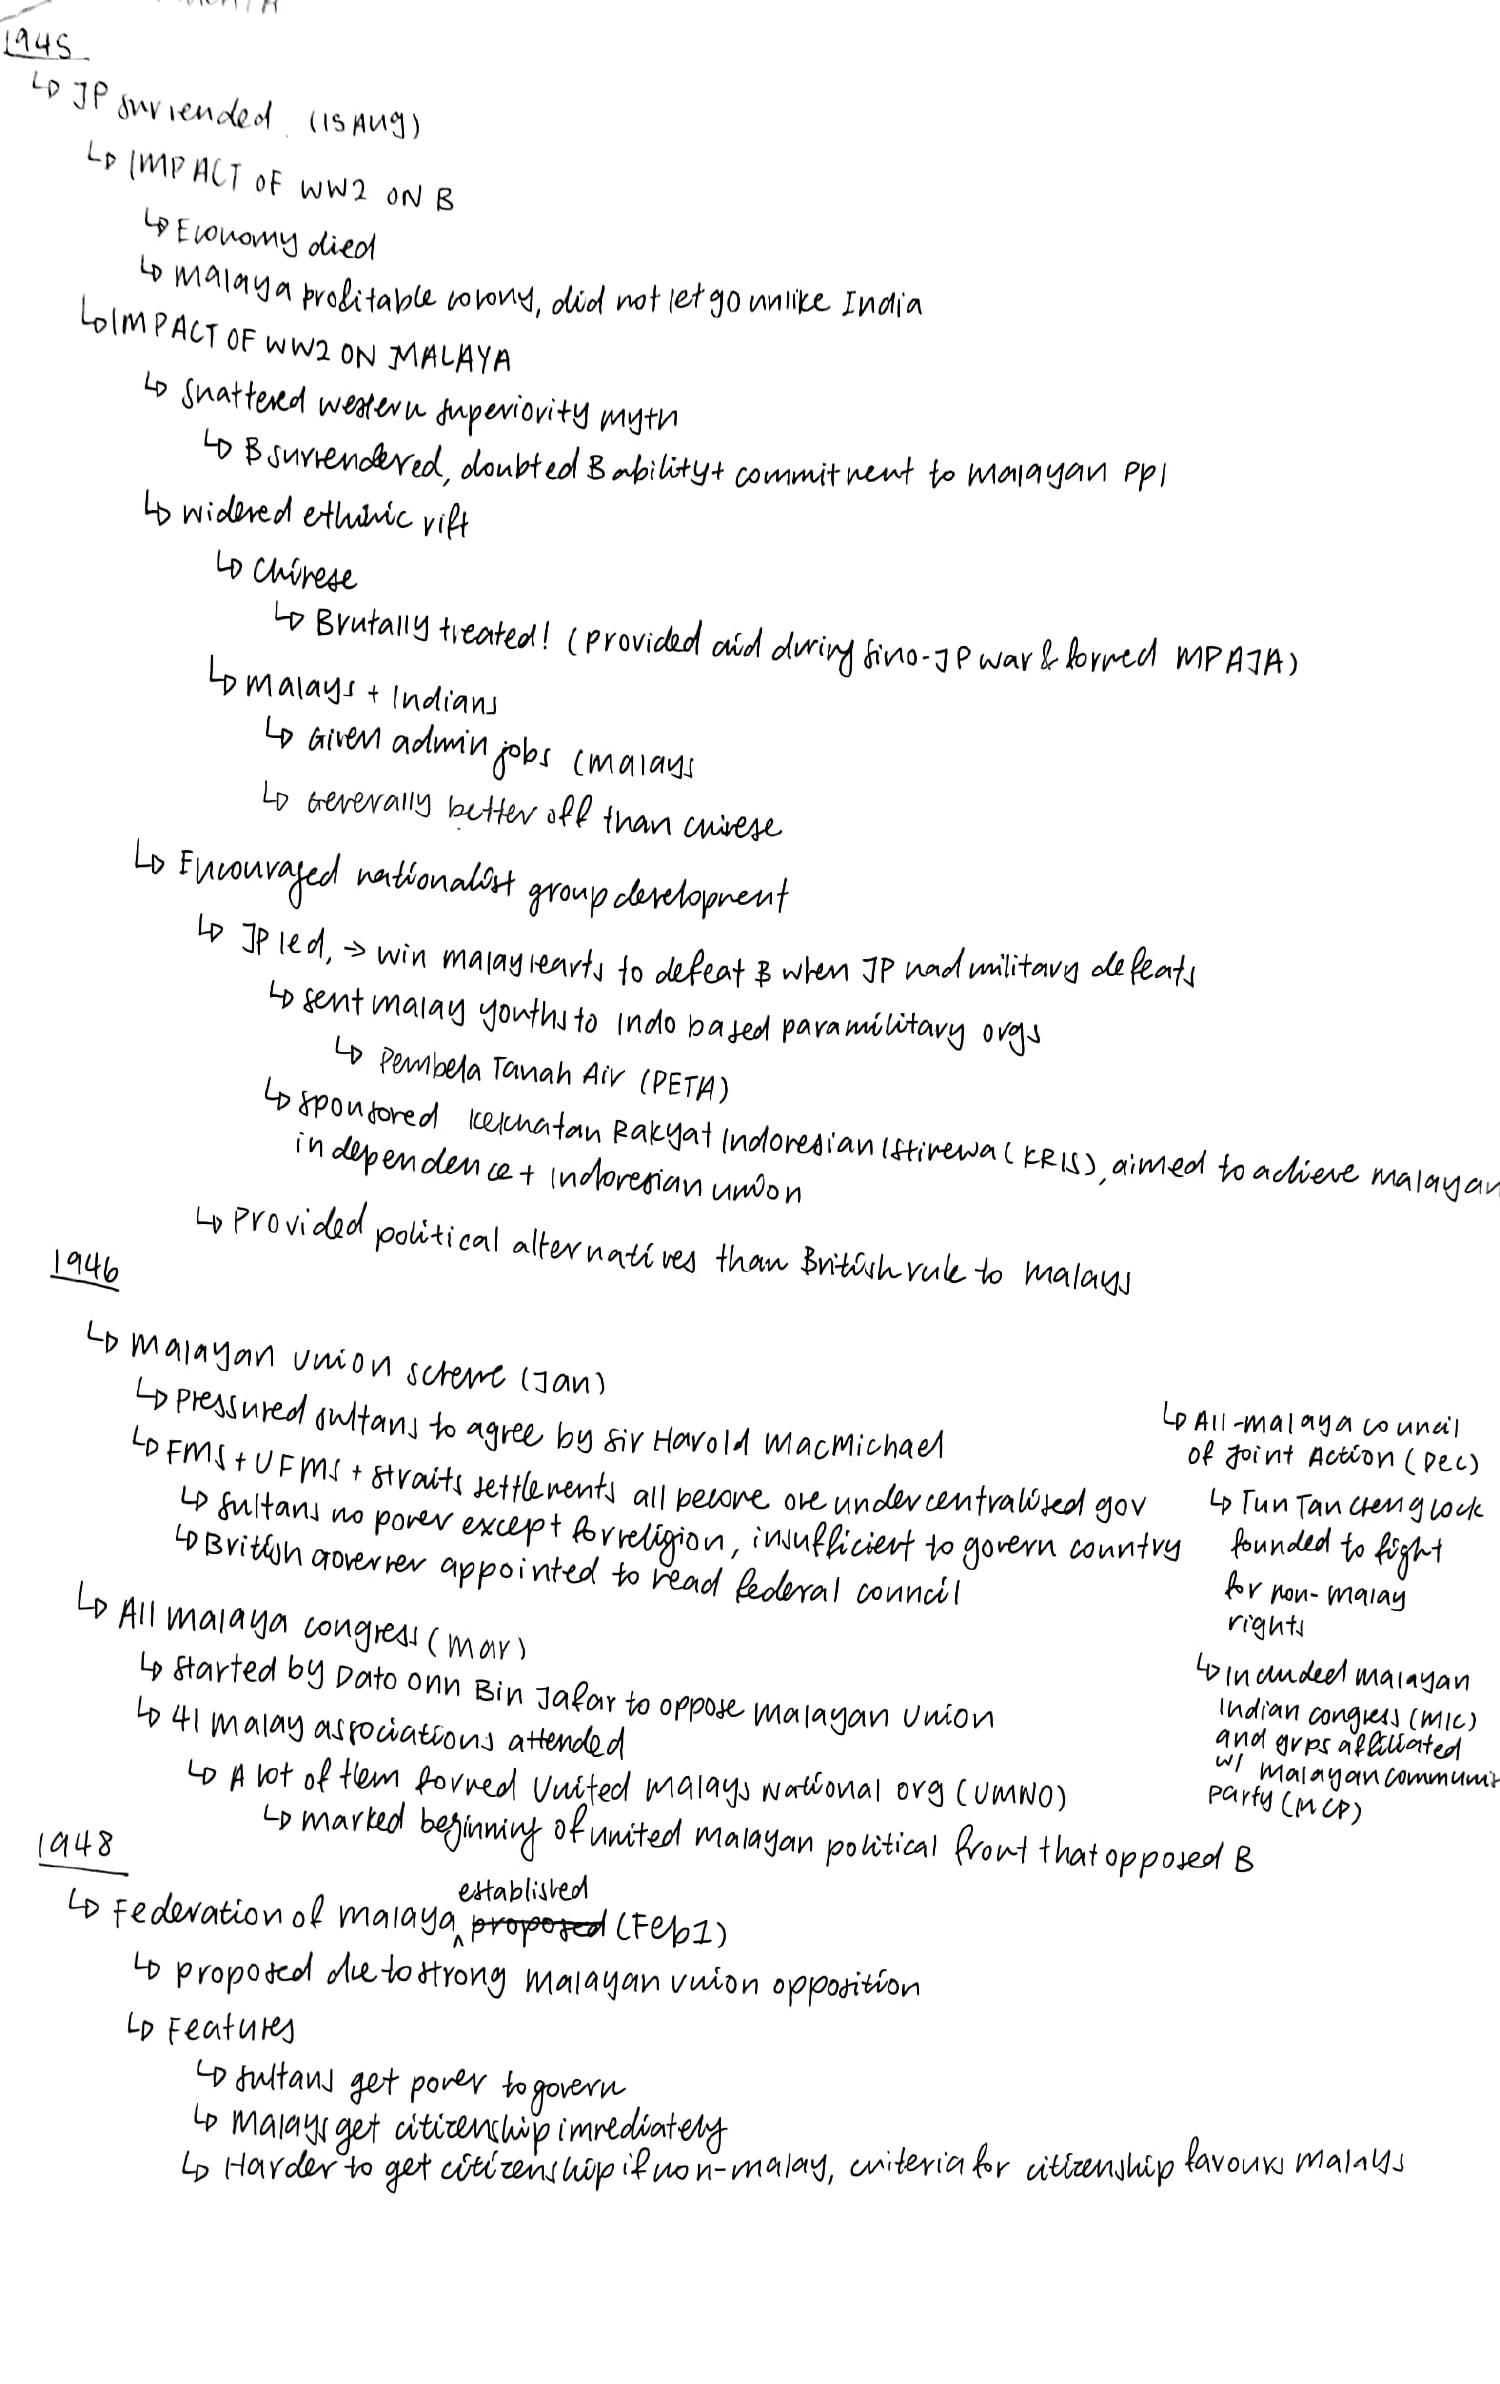 1945
↳ JP surrended. (15 Aug)
↳ IMPACT OF WW2 ON B
↳ Economy died
↳ Malaya profitable colony, did not let go unlike India
↳ IMPACT OF WW2 ON MALAYA
↳ Shattered western superiority myth
↳ B surrendered, doubted B ability + commitment to Malayan ppl
↳ Widened ethinic rift
↳ Chinese
↳ Brutally treated! (provided aid during Sino-JP war & formed MPAJA)
↳ Malays + Indians
↳ Given admin jobs (Malays
↳ Generally better off than Chinese
↳ Encouraged nationalist group development
↳ JP led, → win Malay hearts to defeat B when JP had military defeats
↳ Sent Malay youths to Indo based paramilitary orgs
↳ Pembela Tanah Air (PETA)
↳ Sponsored Kekuatan Rakyat Indonesian Istimewa (KRIS), aimed to achieve Malayan
independence + Indonesian union
↳ Provided political alternatives than British rule to Malays
1946
↳ Malayan Union scheme (Jan)
↳ Pressured sultans to agree by Sir Harold MacMichael
↳ FMS + UFMS + Straits settlements all become one under centralised gov
↳ Sultans no power except for religion, insufficient to govern country
↳ British governer appointed to head federal council
↳ All Malaya congress (Mar)
↳ Started by Dato Onn Bin Jafar to oppose Malayan Union
↳ 41 Malay associations attended
↳ A lot of them formed United Malays National Org (UMNO)
↳ Marked beginning of united Malayan political front that opposed B
↳ All-Malaya council
of Joint Action (Dec)
↳ Tun Tan Cheng Lock
founded to fight
for non-Malay
rights
↳ Included Malayan
Indian Congress (MIC)
and grps affiliated
w/ Malayan Communi
Party (MCP)
1948
↳ Federation of Malaya established proposed (Feb 1)
↳ Proposed due to strong Malayan Union opposition
↳ Features
↳ Sultans get power to govern
↳ Malays get citizenship immediately
↳ Harder to get citizenship if non-Malay, criteria for citizenship favours Malays